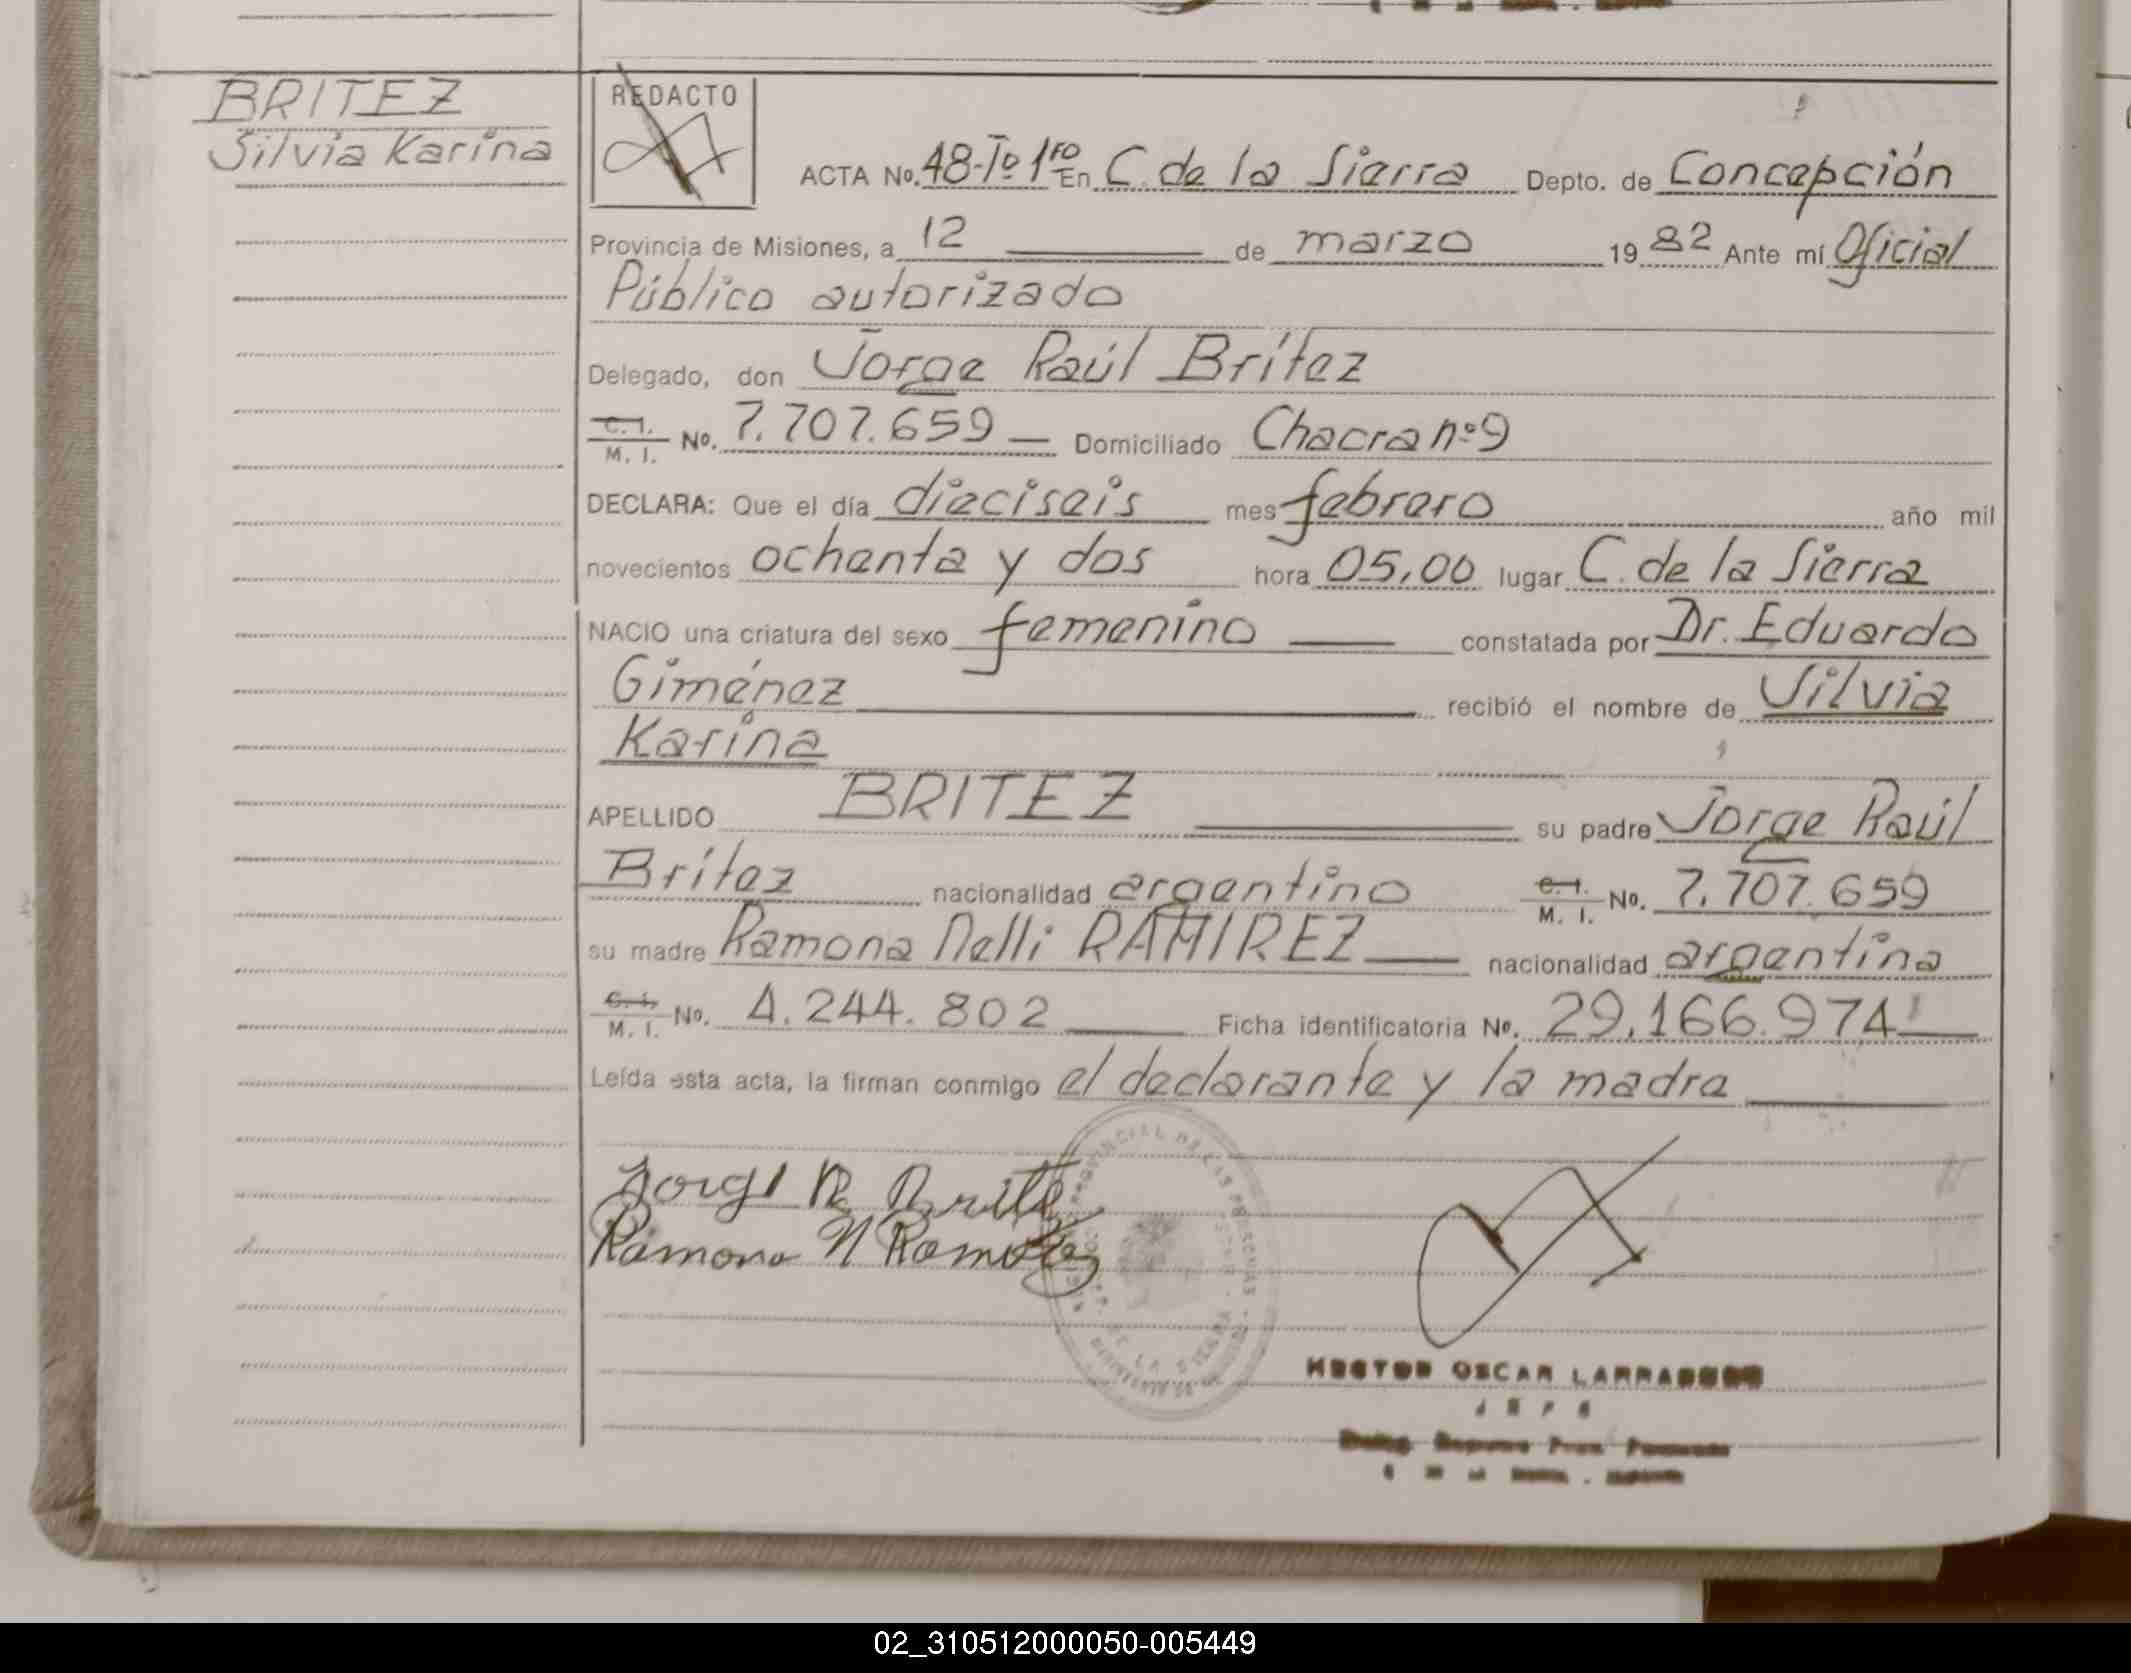 BRITEZ
Silvia Karina
REDACTO
ACTA No. 48-Tº 1ro En C. de la Sierra Depto. de Concepción
Provincia de Misiones, a 12 de marzo 1982 Ante mí Oficial
Público autorizado
Delegado, don Jorge Raúl Britez
C. I. M. I. No. 7.707.659 Domiciliado Chacra nº 9
DECLARA: Que el día dieciseis mes febrero año mil
novecientos ochenta y dos hora 05,00 lugar C. de la Sierra
NACIO una criatura del sexo femenino constatada por Dr. Eduardo
Giménez recibió el nombre de Silvia
Karina
APELLIDO BRITEZ su padre Jorge Raúl
Britez nacionalidad argentino C. I. M. I. No. 7.707.659
su madre Ramona Nelli RAMIREZ nacionalidad argentina
C. I. M. I. No. 4.244.802 Ficha identificatoria No. 29.166.974
Leída esta acta, la firman conmigo el declarante y la madre
Jorge R Brite
Ramona N Ramirez
HECTOR OSCAR
JEFE
02_310512000050-005449